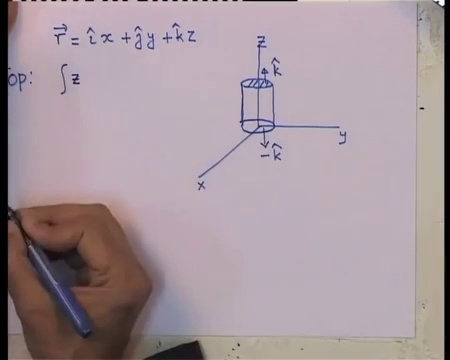 r⃗ = îx + ĵy + k̂z
op: ∫z
z
k̂
y
-k̂
x